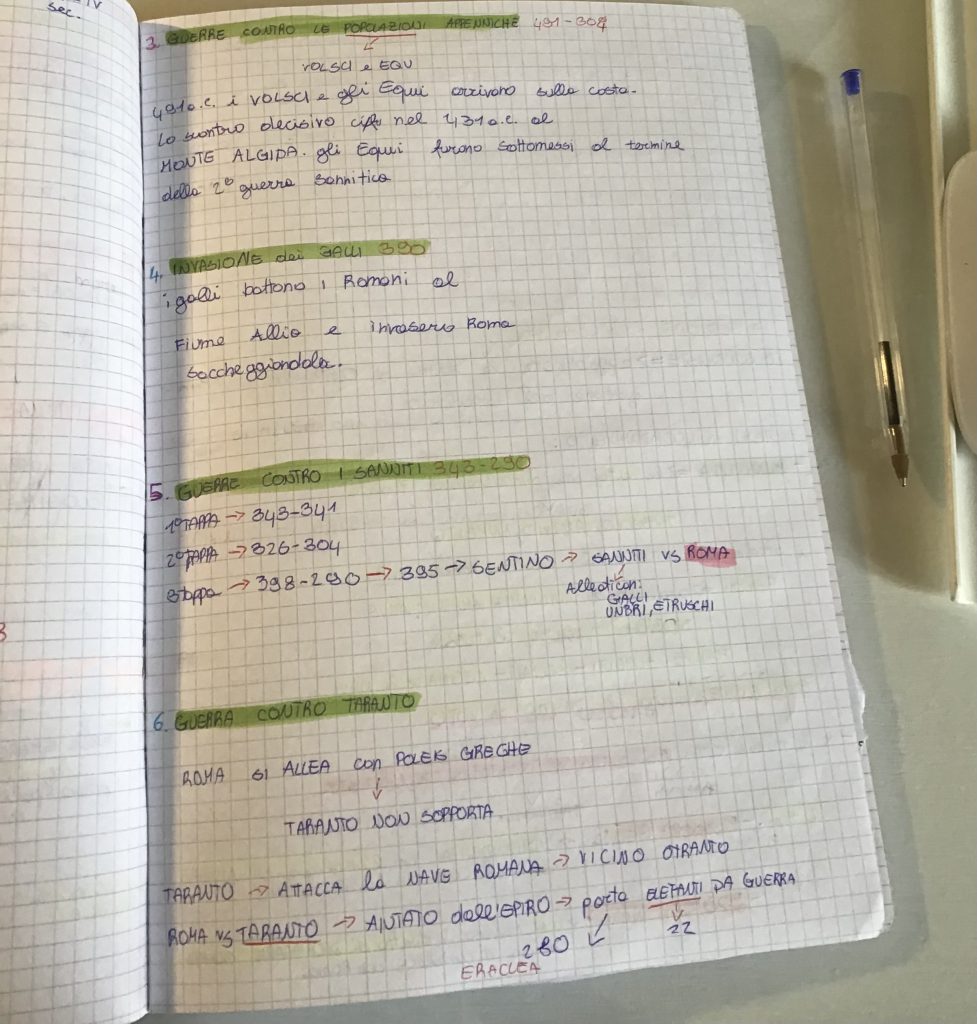 IV
sec.
3. GUERRE CONTRO LE POPOLAZIONI APPENNICHE 491-304
VOLSCI e EQU
491a.C. i VOLSCI e gli Equi arrivano sulla costa.
Lo scontro decisivo nel 431a.C. al
MONTE ALGIDA. gli Equi furono sottomessi al termine
della 2° guerra sannitica
4. INVASIONE dei GALLI 390
i galli battono i Romani al
Fiume Allia e invasero Roma
saccheggiandola.
5. GUERRE CONTRO I SANNITI 343-290
1° TAPPA → 343-341
2° TAPPA → 326-304
3tappa → 398-290 → 395 → SENTINO → SANNITI VS ROMA
Alleati con:
GALLI
UNBRI, ETRUSCHI
6. GUERRA CONTRO TARANTO
ROMA SI ALLEA con POLEIS GRECHE
↓
TARANTO NON SOPPORTA
TARANTO → ATTACCA la NAVE ROMANA → VICINO OTRANTO
ROMA VS TARANTO → AIUTATO dall'EPIRO → porta ELEFANTI DA GUERRA
280 22
ERACLEA